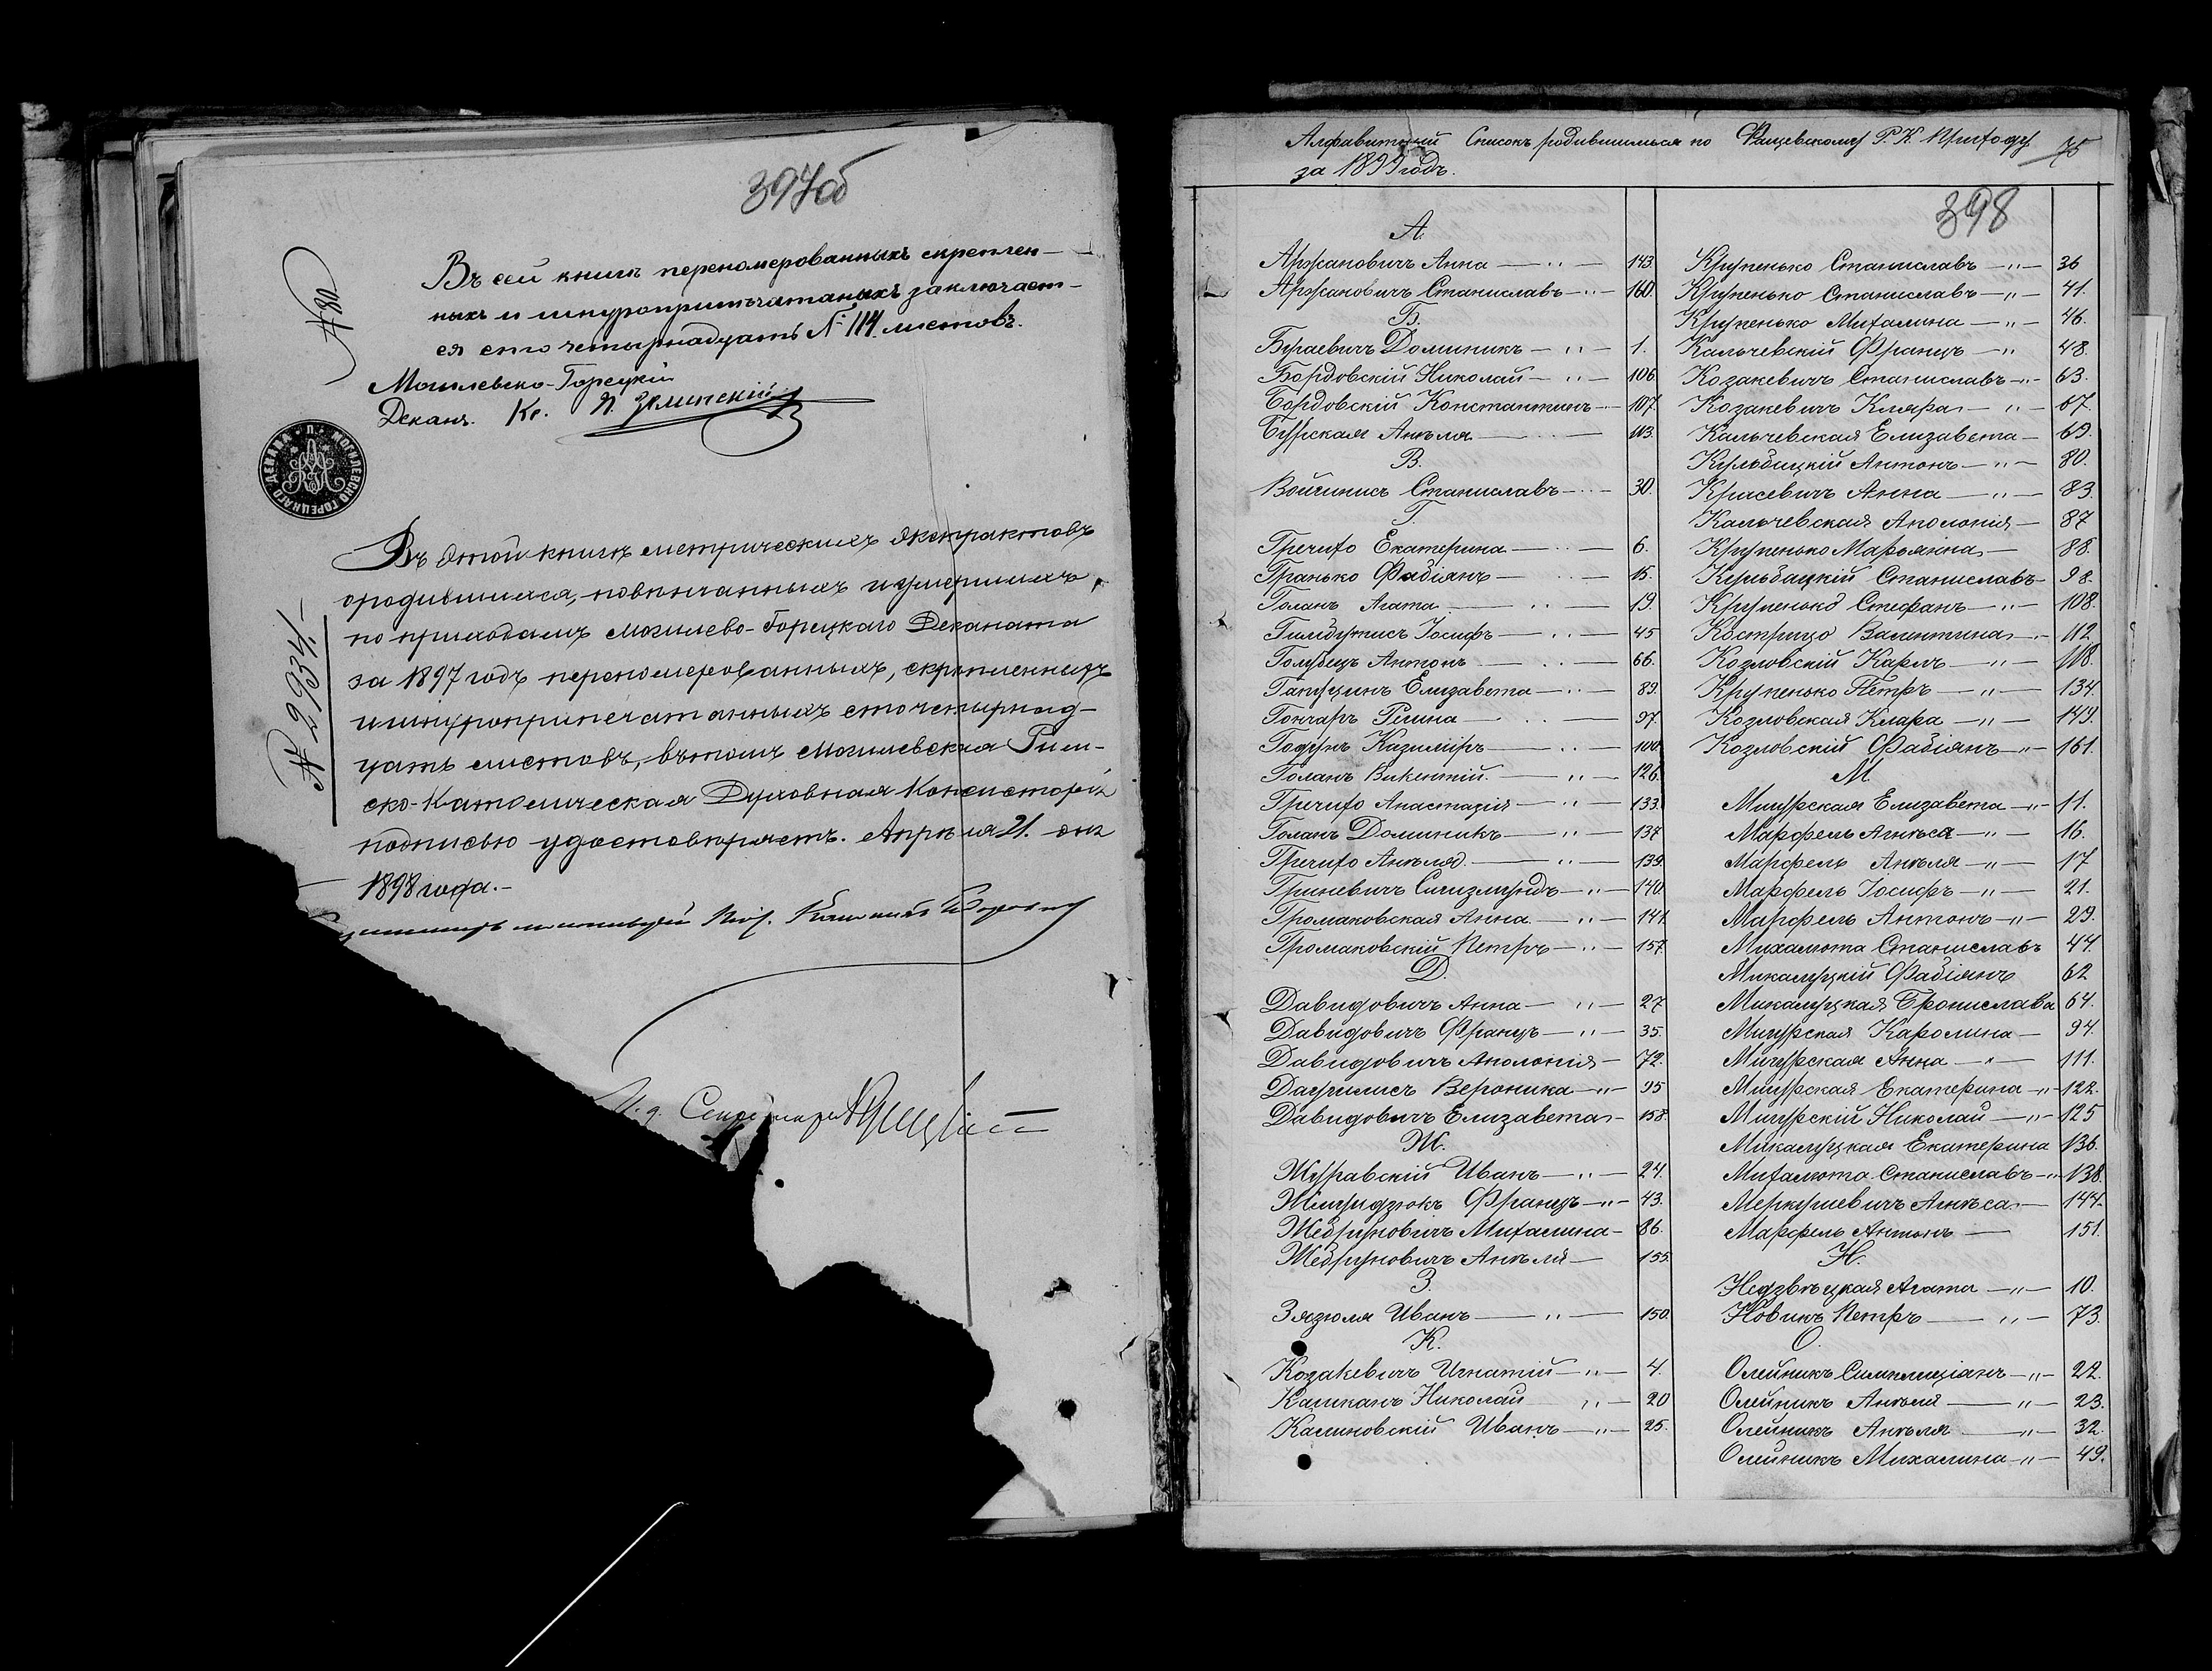 397об
Въ сей книгѣ переномерованныхъ скреплен-
ныхъ и шнуропритьчатаныхъ заключает-
ся сто четырнадцать № 114 листовъ.
Могилевско-Горецкій
Деканъ. Кс. П. Зелинскій
П. МОГИЛЕВСКО ГОРЕЦКАГО ДЕКАНА
Въ этой книгѣ метрическихъ экстрактовъ
ородившихся, повѣнчанныхъ и умершихъ
по приходамъ Могилево-Горецкаго Деканата
за 1897 годъ переномерованныхъ, скрѣпленныхъ
и шнуроприпечатанныхъ сто четырнад-
цать листовъ, въ томъ Могилевская Рим-
ско-Католическая Духовная Консисторія
подписью удостовѣряетъ. Апрѣля 21. дня
1898 года.-
И. д. Секретаря
Алфавитный Списокъ родившимся по Фащевскому Р. К. Приходу
за 1899 годъ.
398
А.
Аржановичъ Анна — 143.
Аржановичъ Станиславъ — 160.
Б.
Бураевичъ Доминикъ — 1.
Бордовскій Николай — 106
Бордовскій Константинъ — 107.
Бурская Анѣля — 113.
В.
Войшнисъ Станиславъ — 30.
Г.
Гречихо Екатерина — 6.
Гранько Фабіянъ — 15.
Голанъ Агата — 19.
Гимбутисъ Іосифъ — 45
Голубцъ Антонъ — 66.
Ганусинъ Елизавета — 89.
Гончаръ Регина — 97.
Годунъ Казиміръ — 100
Голанъ Викентій — 126.
Гречихо Анастазія — 133.
Голанъ Доминикъ — 137
Гречихо Анѣля — 139
Гриневичъ Сигизмундъ — 140.
Громаковская Анна — 141.
Громаковскій Петръ — 157.
Д.
Давидовичъ Анна — 27
Давидовичъ Францъ — 35.
Давидовичъ Аполонія — 72.
Даунисъ Вероника — 95
Давидовичъ Елизавета — 158.
Ж.
Журавскій Иванъ — 24.
Жмуидзюкъ Францъ — 43.
Жебруновичъ Михалина — 86.
Жебруновичъ Анѣля — 155.
З.
Зязюля Иванъ — 150.
К.
Козакевичъ Игнатій — 4.
Кашканъ Николай — 20
Калиновскій Иванъ — 25.
Крупенько Станиславъ — 36
Крупенько Станиславъ — 41.
Крупенько Михалина — 46.
Кальчевскій Францъ — 48.
Козакевичъ Станиславъ — 63.
Козакевичъ Кляра — 67.
Кальчевская Елизавета — 69.
Кульбицкій Антонъ — 80.
Красевичъ Анна — 83.
Кальчевская Аполонія — 87
Крупенько Марьянна — 88.
Кульбацкій Станиславъ — 98.
Крупенько Стефанъ — 108.
Кострицо Валентина — 112
Козловскій Карлъ — 118.
Крупенько Петръ — 134.
Козловская Клара — 149.
Козловскій Фабіянъ — 161.
М.
Мигурская Елизавета — 11.
Марфель Агнѣса — 16.
Марфель Анѣля — 17
Марфель Іосифъ — 21.
Марфель Антонъ — 29.
Михалюта Станиславъ 44
Микалуцкій Фабіянъ 62
Микалуцкая Брониславa 64.
Мигурская Каролина — 94.
Мигурская Анна — 111.
Мигурская Екатерина — 122.
Мигурскій Николай — 125
Микалуцкая Екатерина 136.
Михалюта Станиславъ — 138.
Меркушевичъ Агнѣса — 144.
Марфель Антонъ — 151.
Н.
Недзвѣцкая Агата — 10.
Новикъ Петръ — 73.
О.
Олейникъ Симплиціанъ — 22.
Олейникъ Анѣля — 23.
Олейникъ Анѣля — 32.
Олейникъ Михалина — 49.